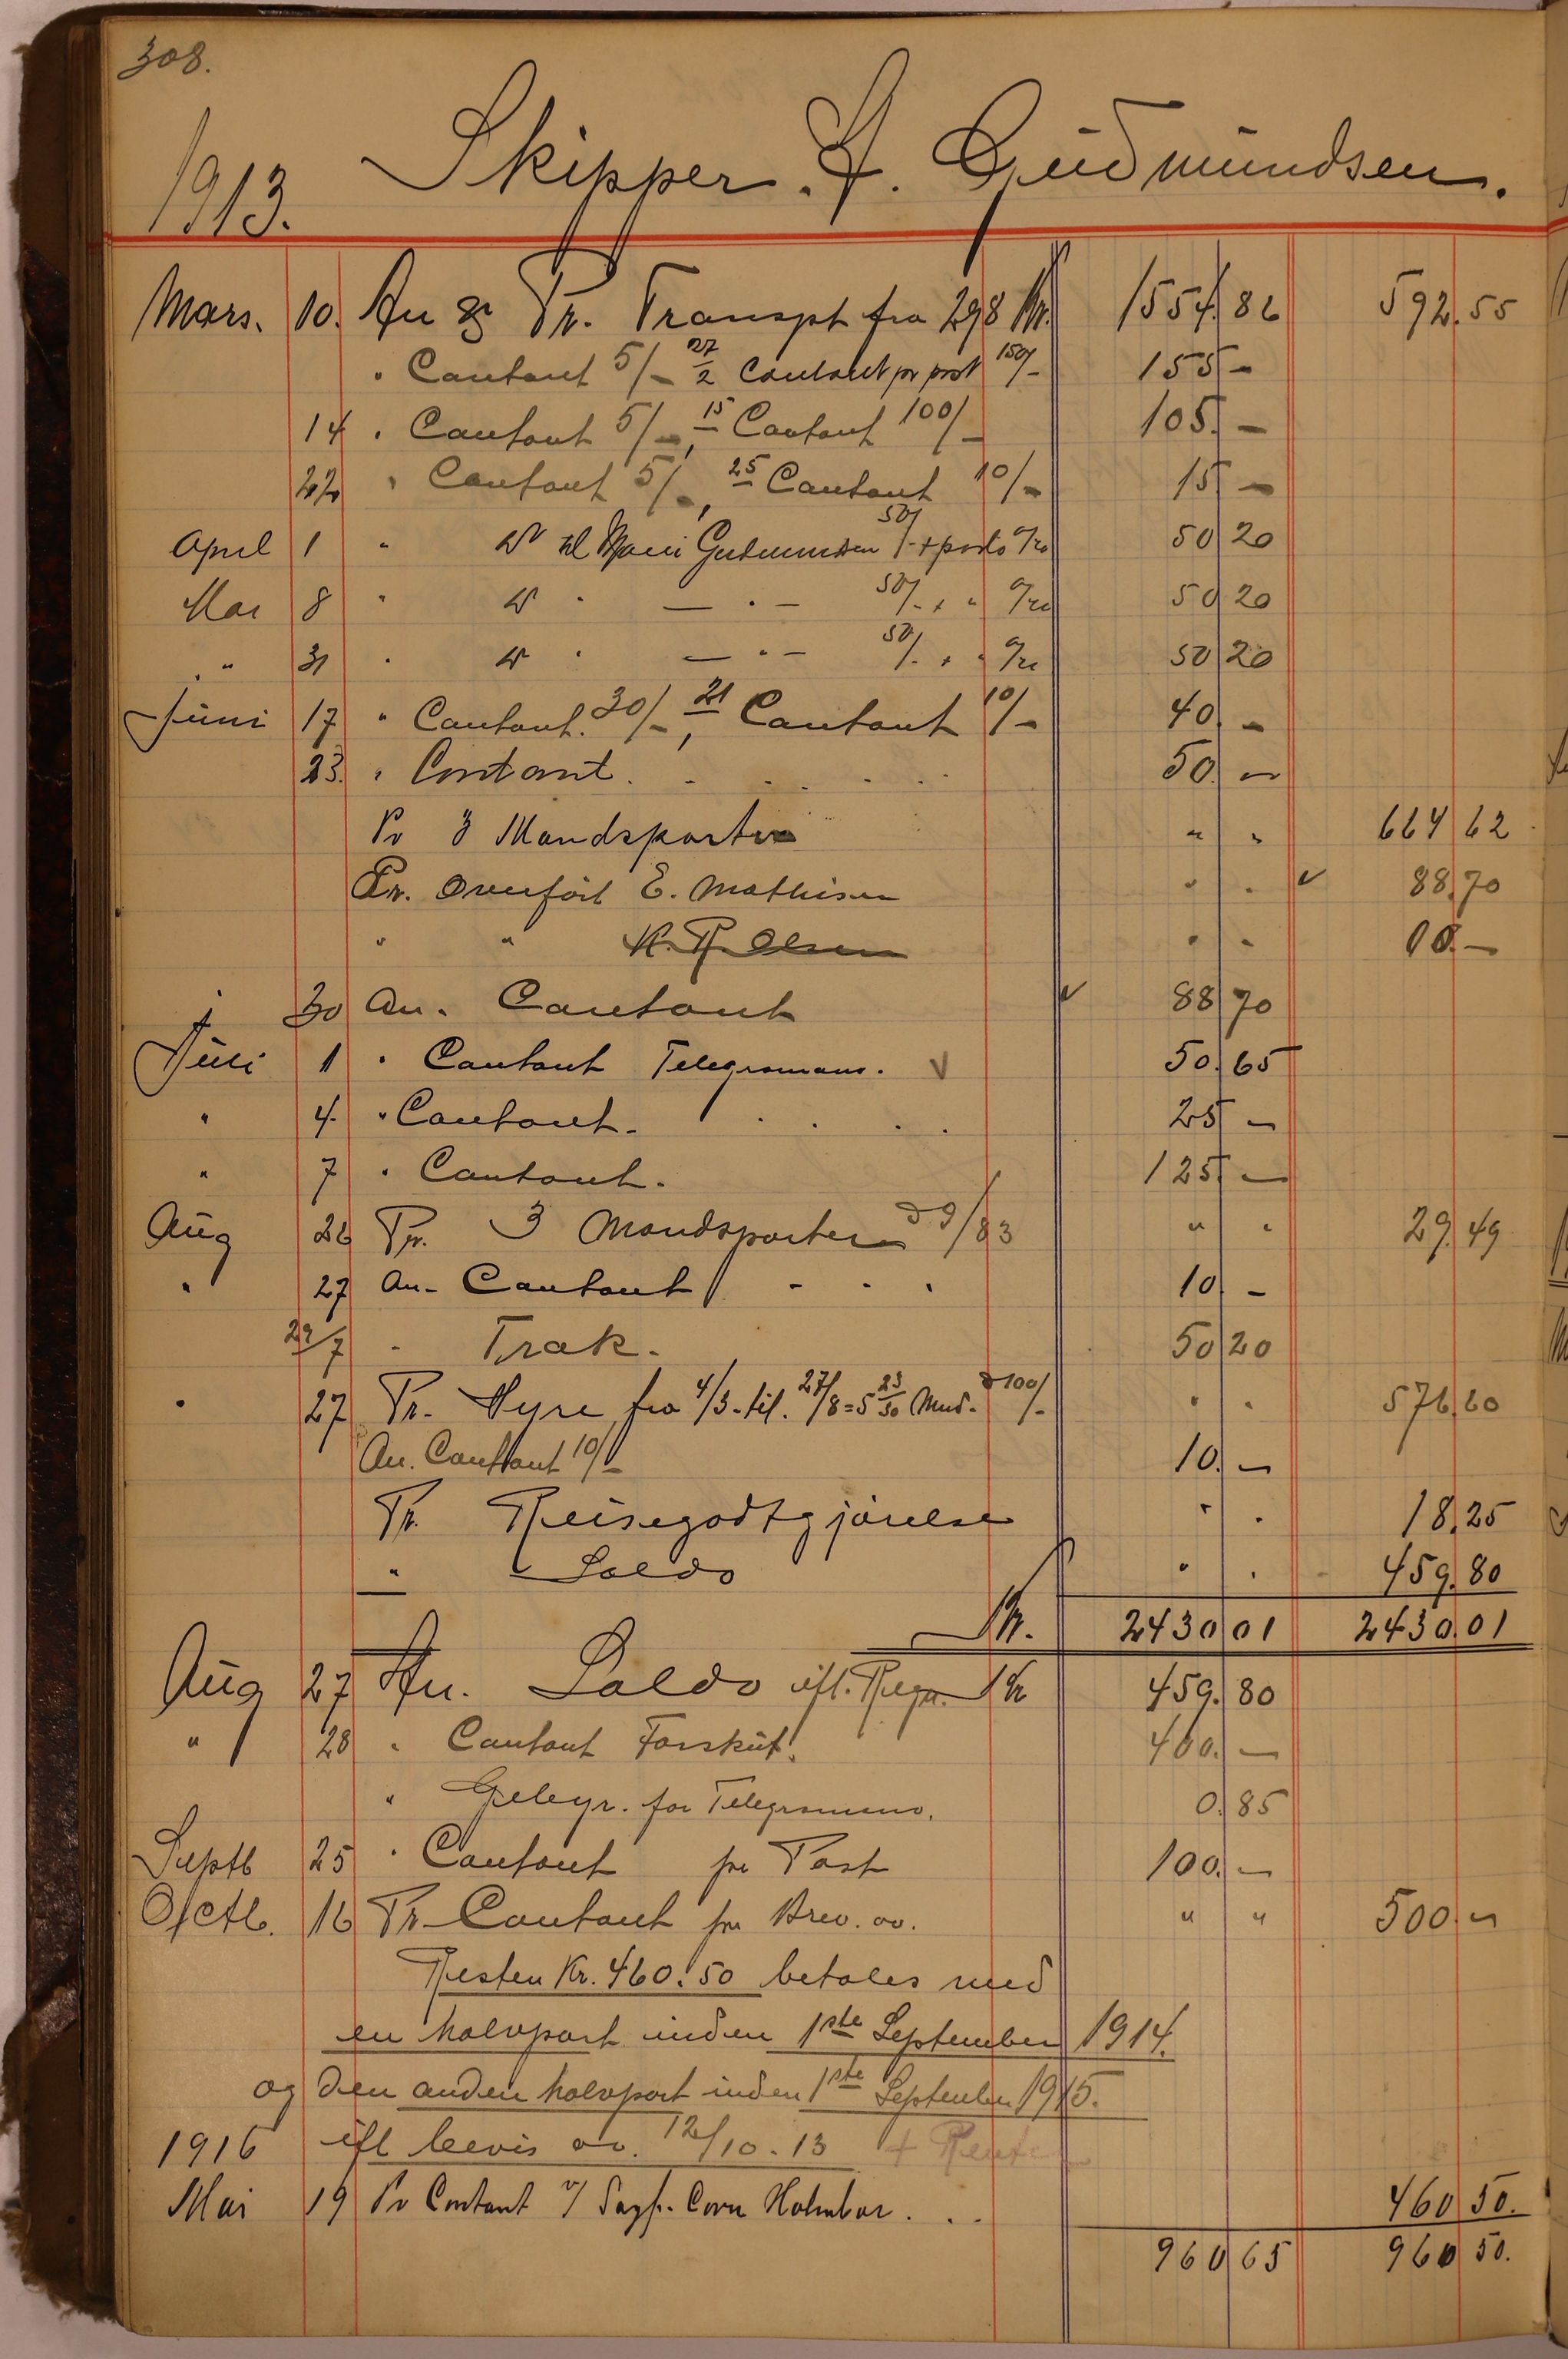 308.
1913. Skipper. S. Gudmundsen.
Mars. 10. An & Pr. Transpt fra 298 Kr. 1554.86 592.55
" Contant 5/- 27/2 Contant pr post 150/- 155 -
14 " Contant 5/-, 15 Contant 100/- 105. -
22 " Contant 5/-, 25 Contant 10/- 15 -
April 1 " do til Gudmundsen 50/- + porto 0/20 50 20
Mai 8 " do " — " — 50/- + " 0/20 50 20
" 31 " do " — " — 50/- + " 0/20 50 20
Juni 17 " Contant. 30/-, 21 Contant 10/- 40. -
23. " Contant. 50. -
Pr 3 Mandsparter " " 664 62
Pr. Overført E. Mathisen " " ✓ 88.70
" " K. R. Olsen " " 10. -
30 An. Contant ✓ 88 70
Juli 1 " Contant Telegrammer. V 50.65
" 4. " Contant. 25 -
" 7 " Contant. 125. -
Aug 26 Pr. 3 Mandsparter a 9/83 " " 29.49
" 27 An. Contant 10. -
29/7 " Trak. 50 20
" 27 Pr. Hyre fra 4/3. til. 27/8 = 5 23/30 Mnd. a 100/- " " 576.60
An. Contant 10/- 10. -
Pr. Reisegodtgjørelse " " 18.25
" Saldo " " 459.80
Kr. 2430 01 2430.01
Aug 27 An. Saldo ifl. Regn. Kr 459.80
" 28 " Contant Forskut. 400. -
" for Telegrammer. 0.85
Septb 25 " Contant pr Post 100. -
Octb. 16 Pr Contant pr Brev. " " 500. -
Resten Kr. 460.50 betales med
en halvpart inden 1ste September 1914.
og den anden halvpart inden 1ste September 1915.
1916 ifl bevis 12/10.13 + Rente
Mai 19 Pr Contant v/ Holmboe . . . 460 50.
960 65 960 50.